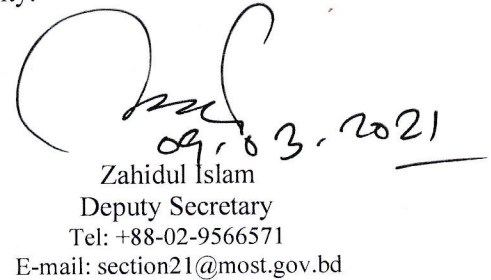 09.03.2021
Zahidul Islam
Deputy Secretary
Tel: +88-02-9566571
E-mail: section21@most.gov.bd